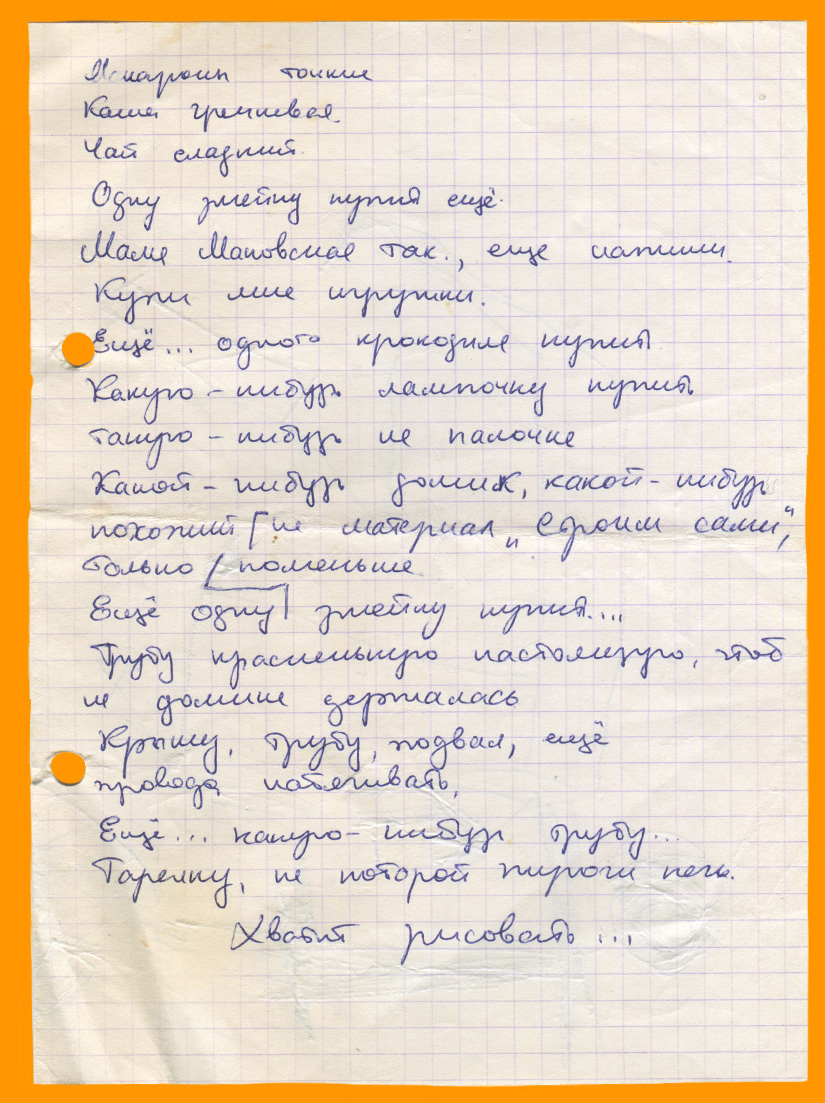 Макароны тонкие
Каша гречневая.
Чай сладкий.
Одну змейку купит ещё.
Маме Маковское так., еще напиши.
Купи мне игрушки.
Ещё... одного крокодила купить
Какую-нибудь лампочку купить
такую-нибудь на палочке
Какой-нибудь домик, какой-нибудь
похожий на материал „Строим сами",
только поменьше
Ещё одну змейку купит....
Трубу красненькую настоящую, чтоб
на домике держалась
Крышу, трубу, подвал, ещё
провода натягивать,
Ещё... какую-нибудь трубу...
Тарелку, на которой пироги печь.
Хватит рисовать...